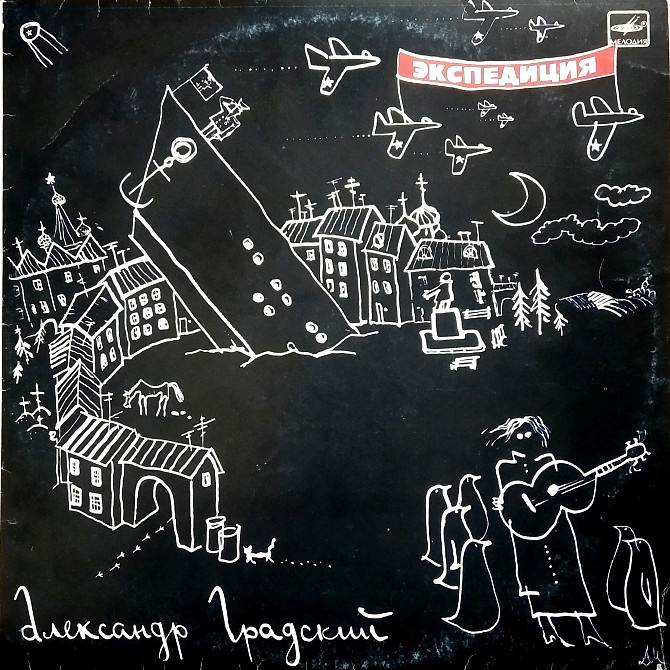 МЕЛОДИЯ
ЭКСПЕДИЦИЯ
Александр Градский